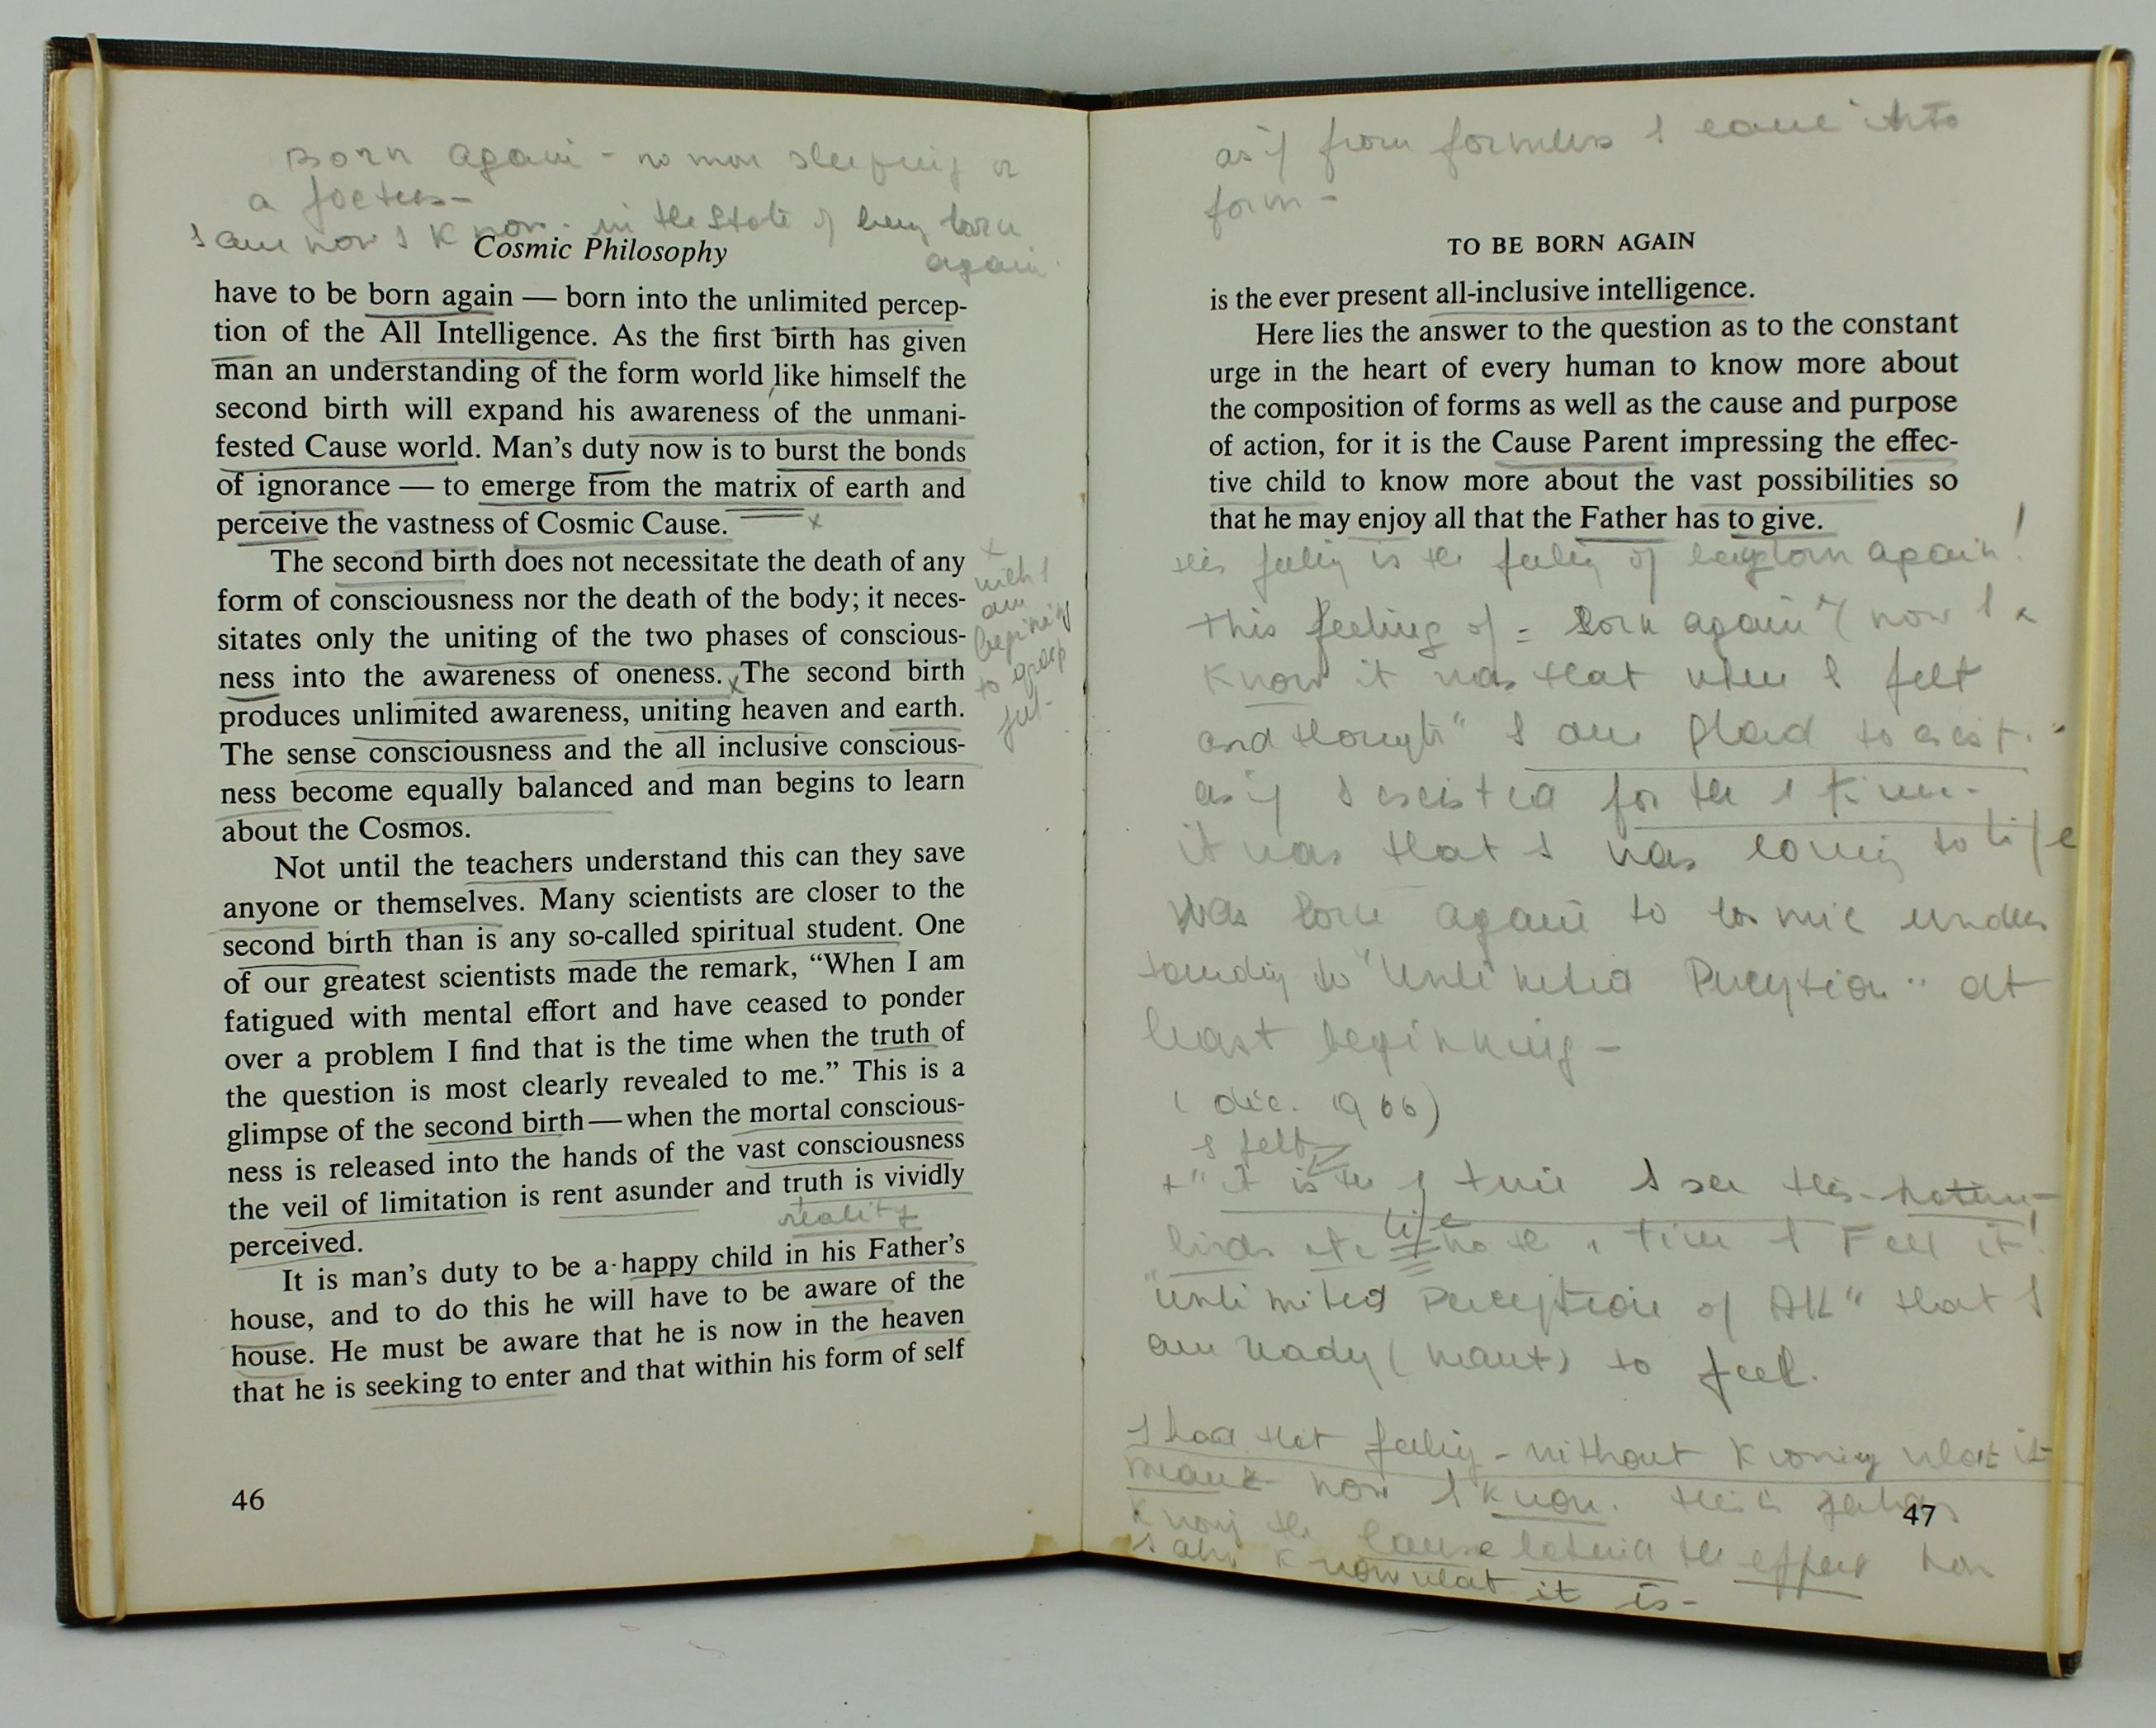 Born again - no more sleeping or
a foetus -
I am now I know. in the state of being born
again.
Cosmic Philosophy
have to be born again — born into the unlimited percep-
tion of the All Intelligence. As the first birth has given
man an understanding of the form world like himself the
second birth will expand his awareness of the unmani-
fested Cause world. Man's duty now is to burst the bonds
of ignorance — to emerge from the matrix of earth and
perceive the vastness of Cosmic Cause. x
The second birth does not necessitate the death of any
form of consciousness nor the death of the body; it neces-
sitates only the uniting of the two phases of conscious-
ness into the awareness of oneness. x The second birth
produces unlimited awareness, uniting heaven and earth.
The sense consciousness and the all inclusive conscious-
ness become equally balanced and man begins to learn
about the Cosmos.
x
am
to grasp
Not until the teachers understand this can they save
anyone or themselves. Many scientists are closer to the
second birth than is any so-called spiritual student. One
of our greatest scientists made the remark, “When I am
fatigued with mental effort and have ceased to ponder
over a problem I find that is the time when the truth of
the question is most clearly revealed to me.” This is a
glimpse of the second birth—when the mortal conscious-
ness is released into the hands of the vast consciousness
the veil of limitation is rent asunder and truth is vividly
reality
perceived.
It is man's duty to be a happy child in his Father's
house, and to do this he will have to be aware of the
house. He must be aware that he is now in the heaven
that he is seeking to enter and that within his form of self
46
as if from formless I came into
form -
TO BE BORN AGAIN
is the ever present all-inclusive intelligence.
Here lies the answer to the question as to the constant
urge in the heart of every human to know more about
the composition of forms as well as the cause and purpose
of action, for it is the Cause Parent impressing the effec-
tive child to know more about the vast possibilities so
that he may enjoy all that the Father has to give.
this feeling is the feeling of being born again!
This feeling of = born again" now I
know it was that when I felt
and thought "I am glad to exist."
as if I existed for the 1 time -
it was that I was coming to life
was born again to cosmic under
standing to "Unlimited Perception" at
least beginning -
(dec. 1966)
I felt
+ "it is the 1 time I see this - nature -
birds etc life the 1 time I Feel it!
"unlimited Perception of All" that I
am ready (want) to feel.
I had that feeling - without knowing what it
meant now I know. this is
knowing the cause behind the effect now
I also know what it is -
47